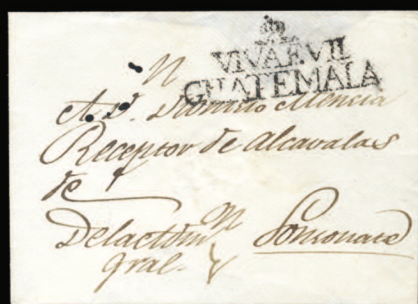 VIVA F. VII
GUATEMALA
N
A D. Dionisio Mencia
Receptor de Alcavalas
de
N
gral. Sonsonate